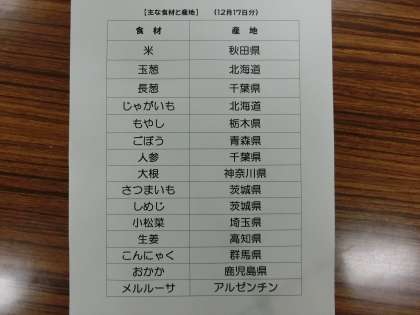 【主な食材と産地】 （12月17日分）
食材 産地
米 秋田県
玉葱 北海道
長葱 千葉県
じゃがいも 北海道
もやし 栃木県
ごぼう 青森県
人参 千葉県
大根 神奈川県
さつまいも 茨城県
しめじ 茨城県
小松菜 埼玉県
生姜 高知県
こんにゃく 群馬県
おかか 鹿児島県
メルルーサ アルゼンチン